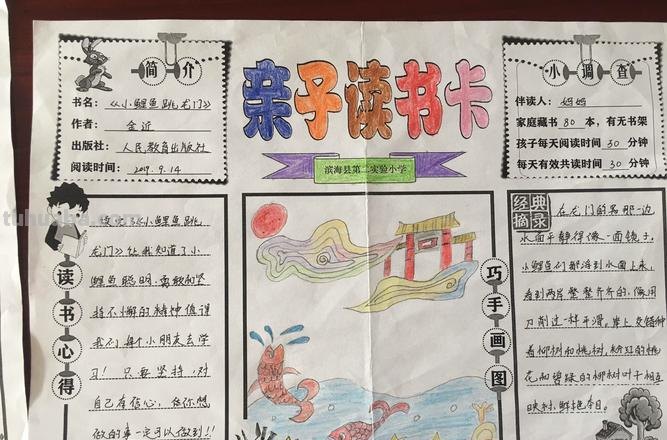 简介
书名：《小鲤鱼跳龙门》
作者：金近
出版社：人民教育出版社
阅读时间：2019.9.14
亲子读书卡
滨海县第二实验小学
小调查
伴读人：妈妈
家庭藏书80本，有无书架
孩子每天阅读时间30分钟
每天有效共读时间30分钟
读书心得
读了《小鲤鱼跳
龙门》让我知道了小
鲤鱼聪明、勇敢和坚
持不懈的精神值得
我们每个小朋友去学
习！只要坚持，对
自己有信心，任何想
做的事一定可以做到！！
巧手画图
经典摘录
在龙门的另一边
水面平静得像一面镜子，
小鲤鱼们都浮到水面上来，
看到两岸整整齐齐的，像用
刀削过一样平滑。岸上交错种
着柳树和桃树，粉红的桃
花和碧绿的柳树叶子相互
映衬，鲜艳夺目。